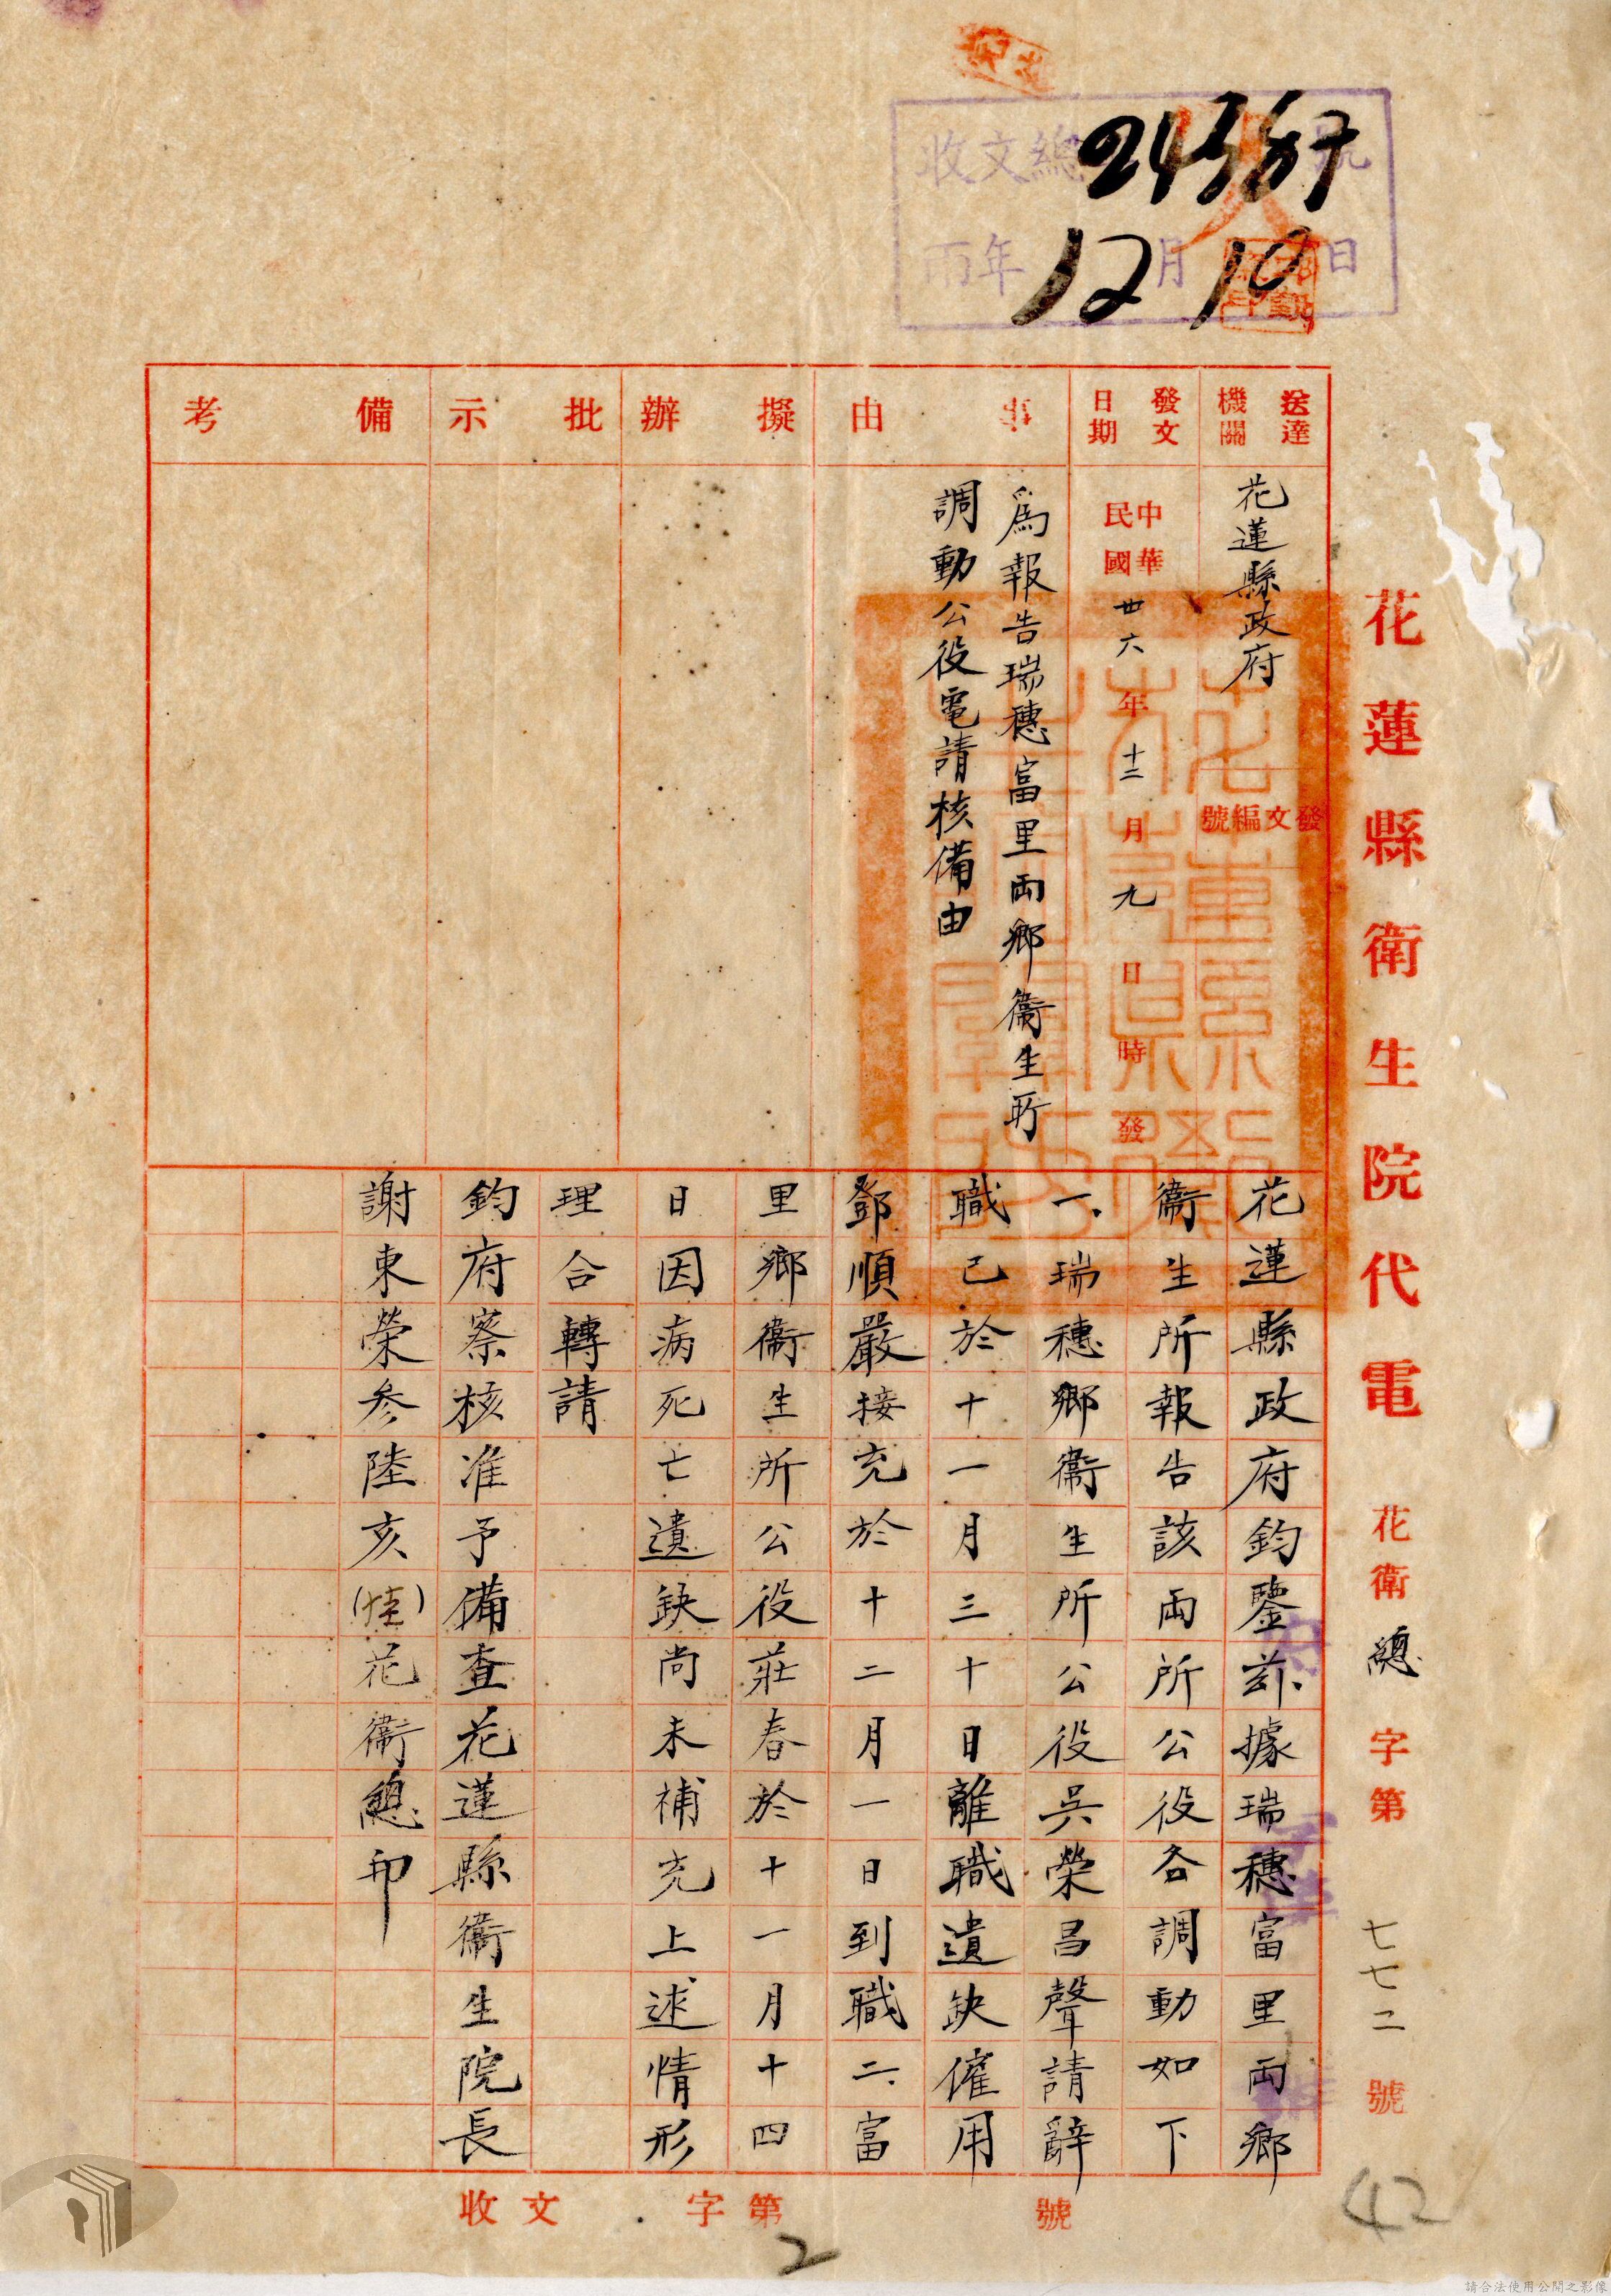 收文總 號
24587
年 12 月 10 日
花蓮縣衛生院代電 花衛總字第七七二號
送達機關
花蓮縣政府
發文編號
發文日期
中華民國卅六年十二月九日 時發
事由
為報告瑞穗富里兩鄉衞生所
調動公役電請核備由
擬辦
批示
備考
花蓮縣政府鈞鑒茲據瑞穗富里兩鄉
衞生所報告該兩所公役各調動如下
一、瑞穗鄉衞生所公役吳榮昌聲請辭
職已於十一月三十日離職遺缺僱用
鄧順嚴接充於十二月一日到職二、富
里鄉衞生所公役莊春於十一月十四
日因病死亡遺缺尚未補充上述情形
理合轉請
鈞府察核准予備查花蓮縣衞生院長
謝東榮參陸亥(佳)花衞總印
收文 字第 號
2
42
請合法使用公開之影像